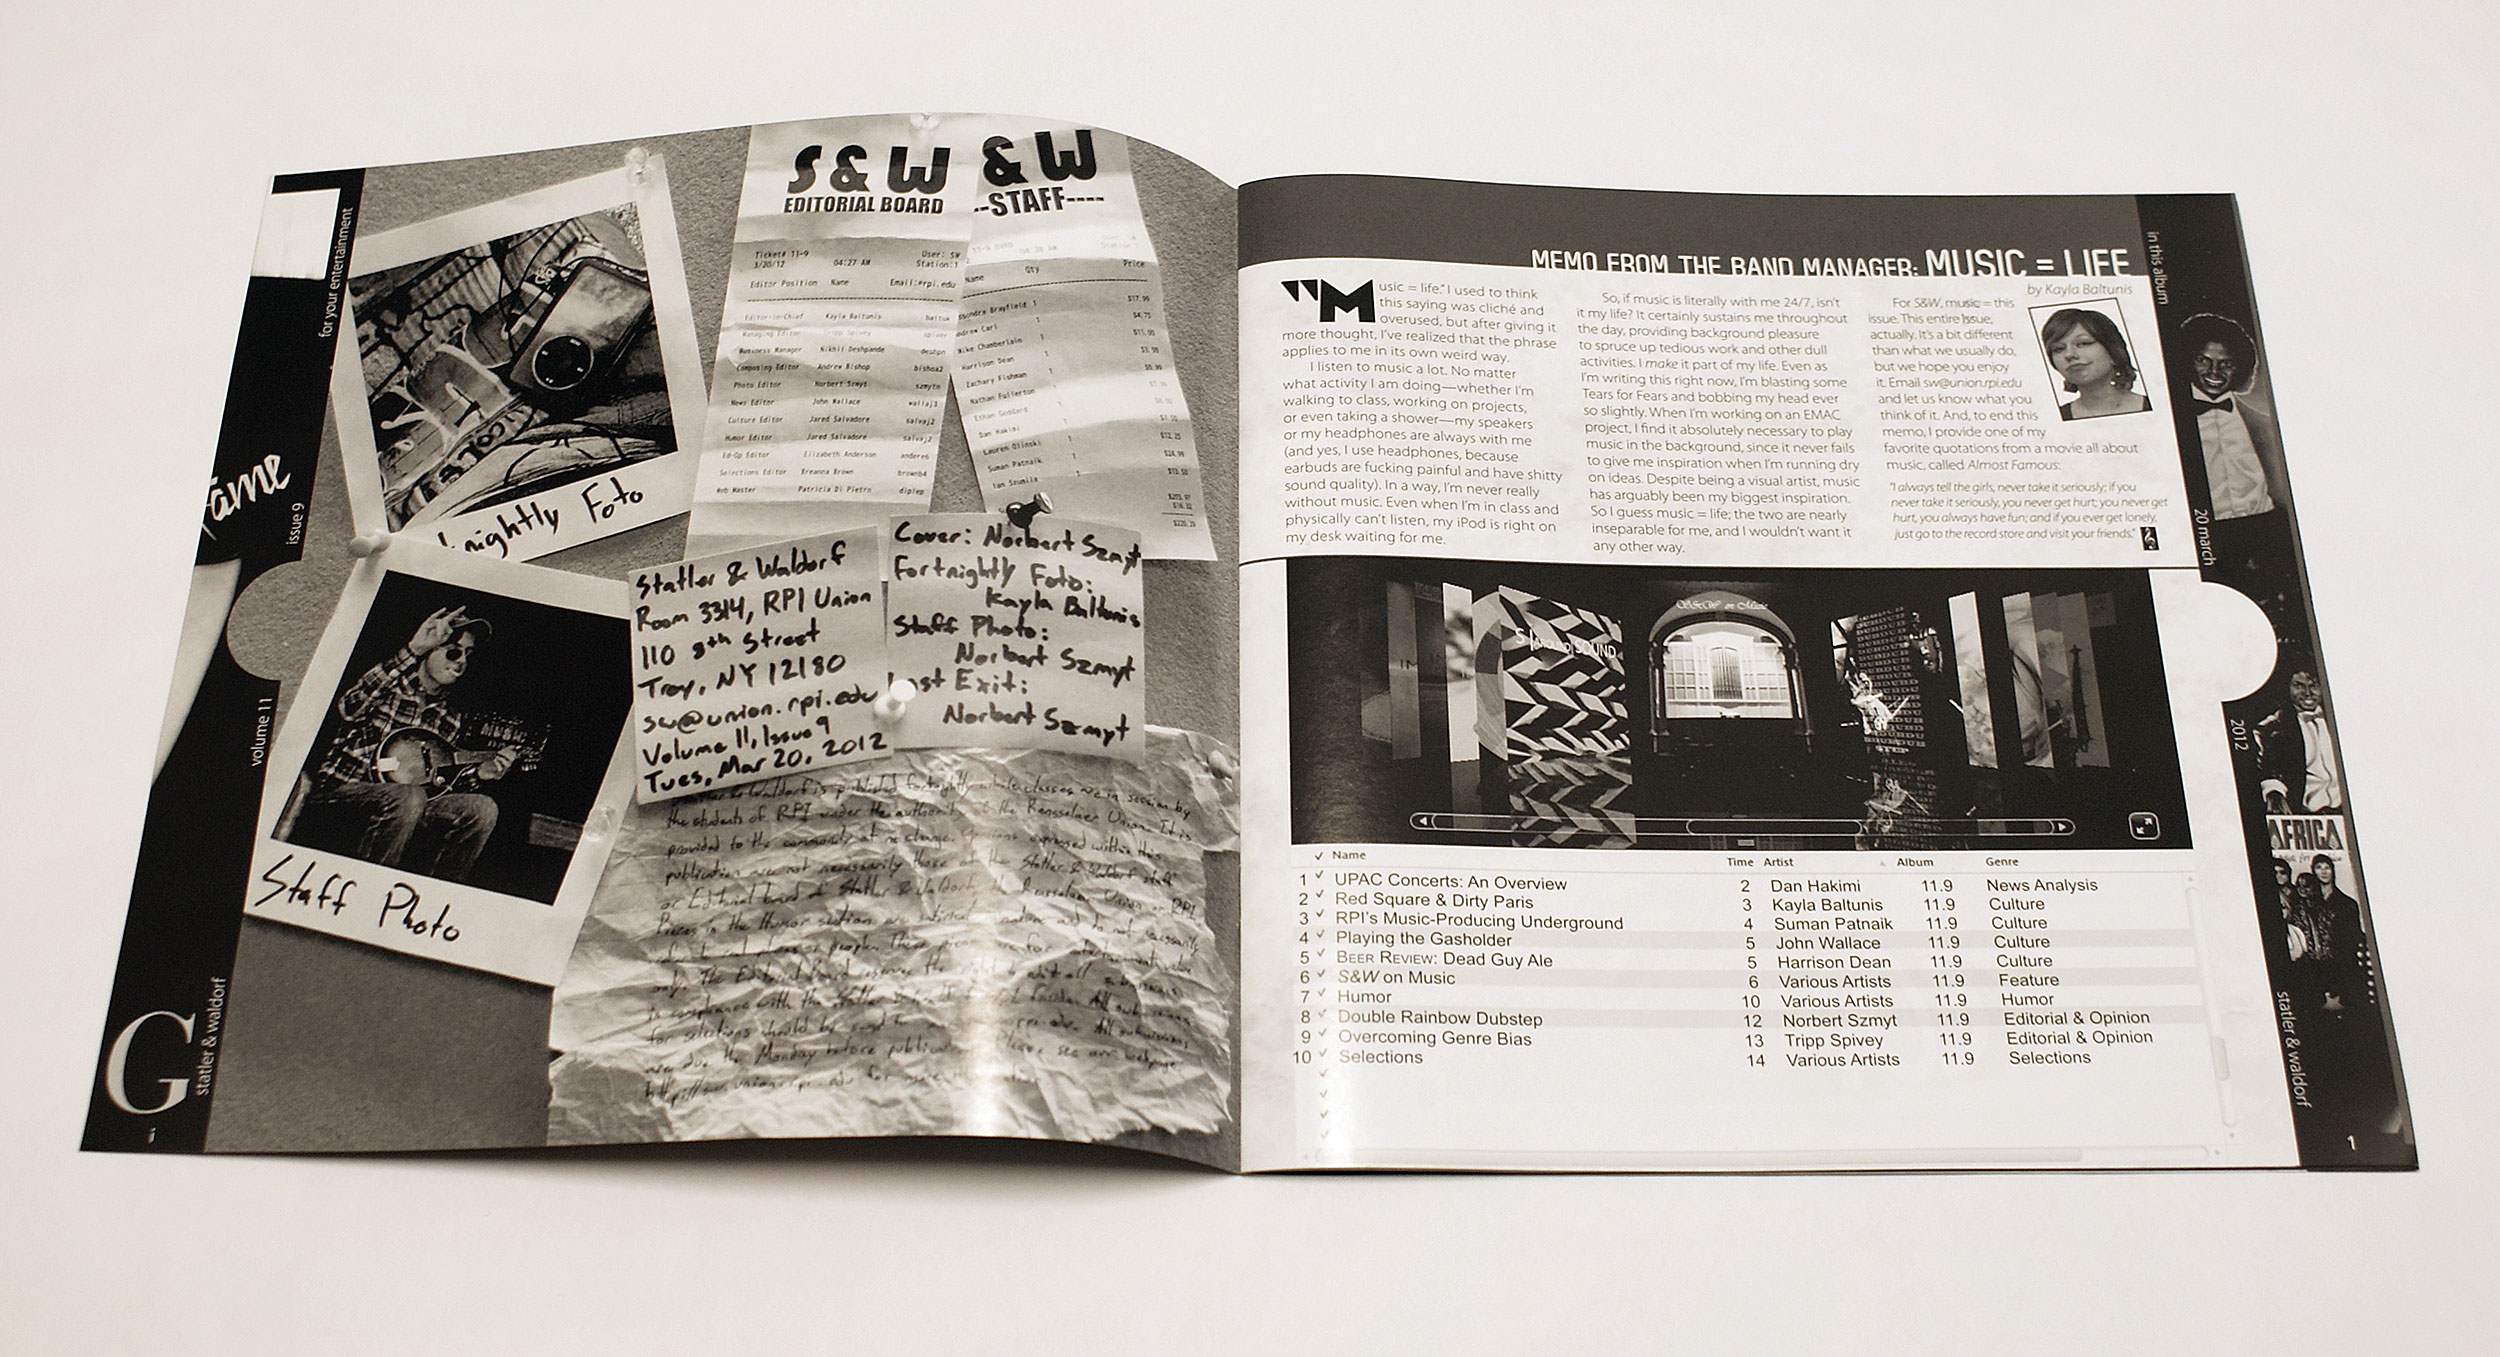 for your entertainment
fame
issue 9
volume 11
statler & waldorf
G
i
Fortnightly Foto
Staff Photo
S & W
EDITORIAL BOARD
Ticket# 11-9
User: SW
3/20/12
04:27 AM
Station:1
Editor Position
Name
Email:@rpi.edu
Editor-in-Chief
Kayla Baltunis
Managing Editor
Tripp Spivey
spivey
Business Manager
Nikhil Deshpande
deshpn
Composing Editor
Andrew Bishop
bishoa2
Photo Editor
Norbert Szmyt
szmytn
News Editor
John Wallace
wallaj3
Culture Editor
Jared Salvadore
salvaj2
Humor Editor
Jared Salvadore
salvaj2
Ed-Op Editor
Elizabeth Anderson
anderes
Selections Editor
Breanna Brown
brownb4
Web Master
Patricia Di Pietro
dipiep
& W
--STAFF----
Name
Qty
Price
Brayfield 1
$17.99
Carl
$4.75
Mike Chamberlain
Harrison Dean
Zachary Fishman
Nathan Fullerton
Ethan Goddard
Dan Hakimi
Lauren Olinski
$12.25
Suman Patnaik
$24.99
Ian Szumila
Statler & Waldorf
Room 3314, RPI Union
110 8th Street
Troy, NY 12180
sw@union.rpi.edu
Volume 11, Issue 9
Tues, Mar 20, 2012
Cover: Norbert Szmyt
Fortnightly Foto:
Kayla Baltunis
Staff Photo:
Norbert Szmyt
Last Exit:
Norbert Szmyt
Statler & Waldorf is published fortnightly while classes are in session by
the students of RPI under the authority of the Rensselaer Union. It is
provided to the community at no charge. Opinions expressed within this
publication are not necessarily those of the Statler & Waldorf staff
or Editorial board of Statler & Waldorf, the Rensselaer Union or RPI.
MEMO FROM THE BAND MANAGER: MUSIC = LIFE
by Kayla Baltunis
"Music = life." I used to think
this saying was cliché and
overused, but after giving it
more thought, I've realized that the phrase
applies to me in its own weird way.
I listen to music a lot. No matter
what activity I am doing—whether I'm
walking to class, working on projects,
or even taking a shower—my speakers
or my headphones are always with me
(and yes, I use headphones, because
earbuds are fucking painful and have shitty
sound quality). In a way, I'm never really
without music. Even when I'm in class and
physically can't listen, my iPod is right on
my desk waiting for me.
So, if music is literally with me 24/7, isn't
it my life? It certainly sustains me throughout
the day, providing background pleasure
to spruce up tedious work and other dull
activities. I make it part of my life. Even as
I'm writing this right now, I'm blasting some
Tears for Fears and bobbing my head ever
so slightly. When I'm working on an EMAC
project, I find it absolutely necessary to play
music in the background, since it never fails
to give me inspiration when I'm running dry
on ideas. Despite being a visual artist, music
has arguably been my biggest inspiration.
So I guess music = life; the two are nearly
inseparable for me, and I wouldn't want it
any other way.
For S&W, music = this
issue. This entire issue,
actually. It's a bit different
than what we usually do,
but we hope you enjoy
it. Email sw@union.rpi.edu
and let us know what you
think of it. And, to end this
memo, I provide one of my
favorite quotations from a movie all about
music, called Almost Famous:
"I always tell the girls, never take it seriously; if you
never take it seriously, you never get hurt; you never get
hurt, you always have fun; and if you ever get lonely,
just go to the record store and visit your friends."
S&W on Music
SOUND
Name Time Artist Album Genre
1 UPAC Concerts: An Overview 2 Dan Hakimi 11.9 News Analysis
2 Red Square & Dirty Paris 3 Kayla Baltunis 11.9 Culture
3 RPI's Music-Producing Underground 4 Suman Patnaik 11.9 Culture
4 Playing the Gasholder 5 John Wallace 11.9 Culture
5 BEER REVIEW: Dead Guy Ale 5 Harrison Dean 11.9 Culture
6 S&W on Music 6 Various Artists 11.9 Feature
7 Humor 10 Various Artists 11.9 Humor
8 Double Rainbow Dubstep 12 Norbert Szmyt 11.9 Editorial & Opinion
9 Overcoming Genre Bias 13 Tripp Spivey 11.9 Editorial & Opinion
10 Selections 14 Various Artists 11.9 Selections
in this album
20 march
2012
AFRICA
statler & waldorf
1